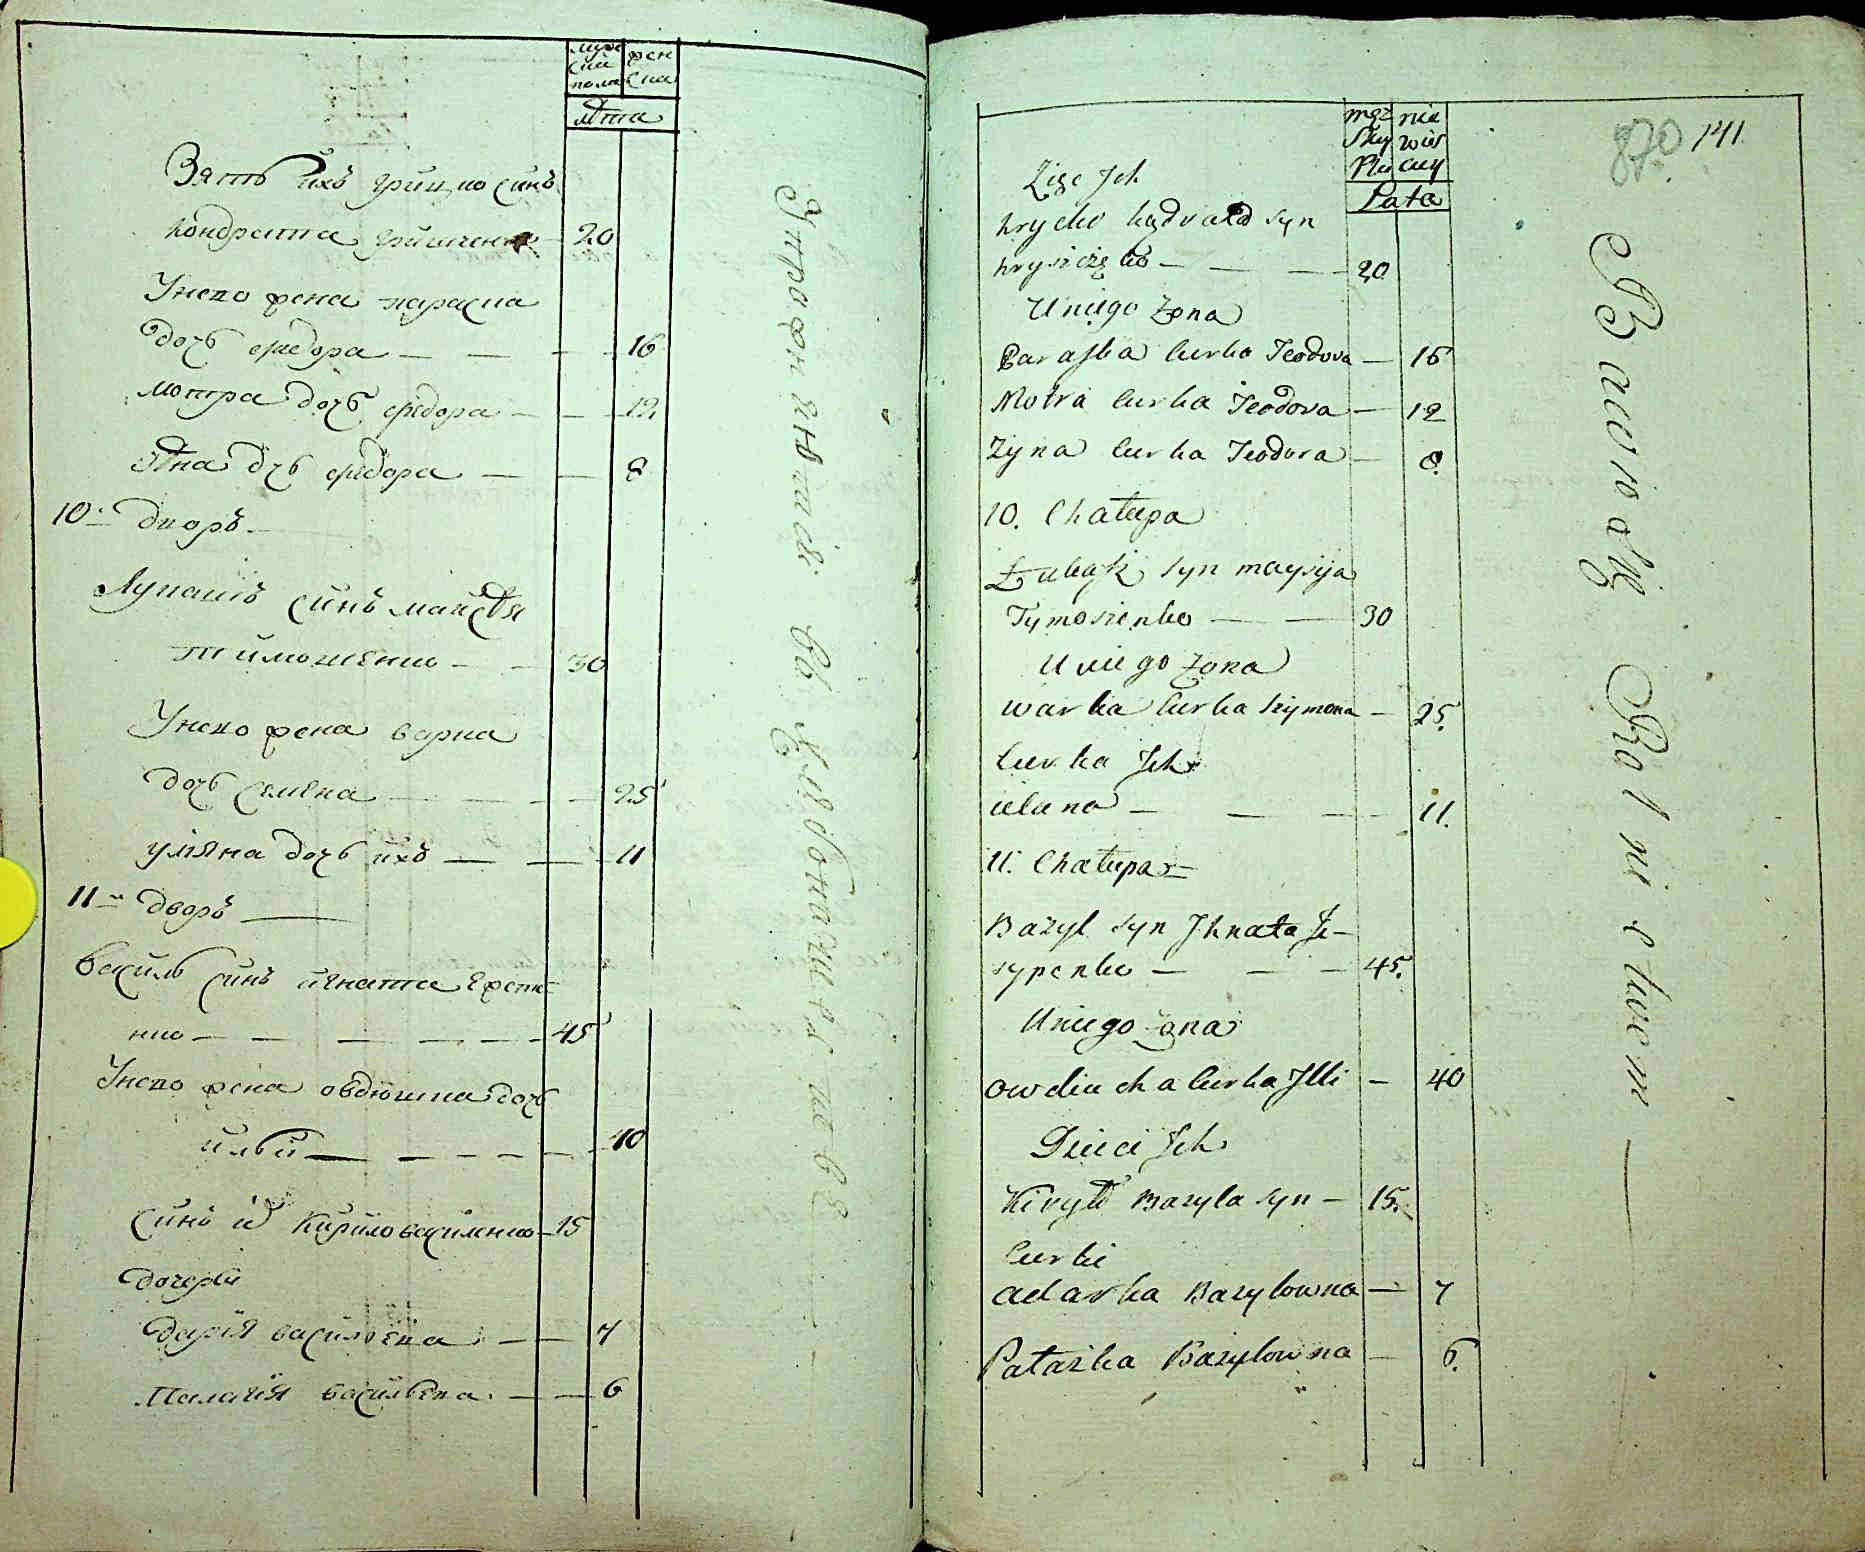 муже
ска
пола
жен
ска
лѣта
Зять ихъ грицко синъ
кондрата грищенко 20
Унего жена параска
дочь федора — — — 16
мотра дочь федора — — 12.
зѣна дчь федора — — 8
10й дворъ —
Лукашъ синъ майсѣя
тимошенко — — 30
Унего жена варка
дочь семена — — — 25
уліяна дочь ихъ — — 11
11й дворъ —
василь синъ игната
нко — — — — — 45
Унего жена овдюшка дочь
ильи — — — — — 40
синъ и кирило василенко — 15
дочери
дария василевна — — 7
палагия василевна — — 6
Унтрофиянѣтсь въ
męz
Sky
Płci
nie
wies
ciey
Lata
870 141.
Zięc Jch
hrycko kądrata syn
hryszczęko — — — 20
Uniego żona
Paraska Curka Teodora — 16
Motra Curka Teodora — 12
Zyna Curka Teodora — 8.
10. Chałupa
Łukasz syn maysija
Tymoszenko — — 30
Uniego żona
warka Curka Szymona — 25.
Curka Jch
ulana — — — 11.
11. Chałupa —
Bazyl syn Jhnata Je-
sypenko — — — 45.
Uniego żona
owdiucha Curka Jlli — 40
Dzieci Jch
Kiryło Bazyla syn — 15.
Curki
adarka Bazylowna — 7
Pałażka Bazylowna — 6.
Bawią Rolnictwem —